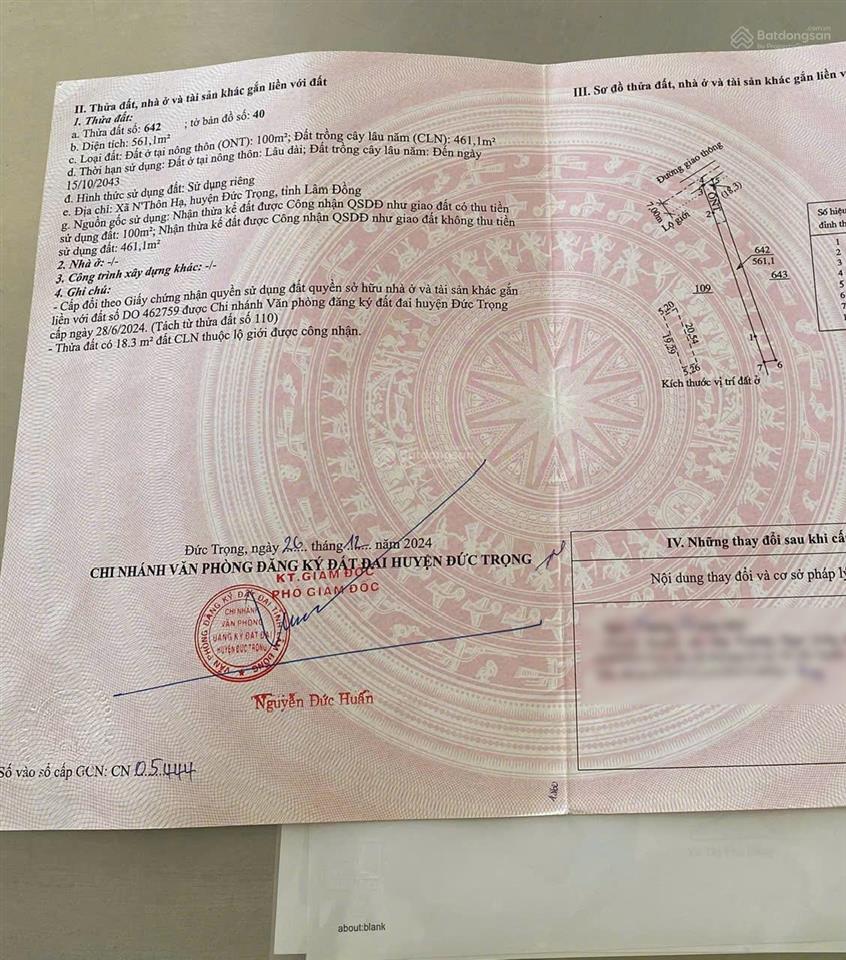 Batdongsan
II. Thửa đất, nhà ở và tài sản khác gắn liền với đất
1. Thửa đất:
a. Thửa đất số: 642 ; tờ bản đồ số: 40
b. Diện tích: 561,1m²
c. Loại đất: Đất ở tại nông thôn (ONT): 100m²; Đất trồng cây lâu năm (CLN): 461,1m²
d. Thời hạn sử dụng: Đất ở tại nông thôn: Lâu dài; Đất trồng cây lâu năm: Đến ngày
15/10/2043
đ. Hình thức sử dụng đất: Sử dụng riêng
e. Địa chỉ: Xã N'Thôn Hạ, huyện Đức Trọng, tỉnh Lâm Đồng
g. Nguồn gốc sử dụng: Nhận thừa kế đất được Công nhận QSDĐ như giao đất có thu tiền
sử dụng đất: 100m²; Nhận thừa kế đất được Công nhận QSDĐ như giao đất không thu tiền
sử dụng đất: 461,1m²
2. Nhà ở: -/-
3. Công trình xây dựng khác: -/-
4. Ghi chú:
- Cấp đổi theo Giấy chứng nhận quyền sử dụng đất quyền sở hữu nhà ở và tài sản khác gắn
liền với đất số DO 462759 được Chi nhánh Văn phòng đăng ký đất đai huyện Đức Trọng
cấp ngày 28/6/2024. (Tách từ thửa đất số 110)
- Thửa đất có 18.3 m² đất CLN thuộc lộ giới được công nhận.
Đức Trọng, ngày 26 tháng 12 năm 2024
CHI NHÁNH VĂN PHÒNG ĐĂNG KÝ ĐẤT ĐAI HUYỆN ĐỨC TRỌNG
KT.GIÁM ĐỐC
PHÓ GIÁM ĐỐC
VĂN PHÒNG ĐĂNG KÝ ĐẤT ĐAI TỈNH LÂM ĐỒNG
CHI NHÁNH
VĂN PHÒNG
ĐĂNG KÝ ĐẤT ĐAI
HUYỆN ĐỨC TRỌNG
Nguyễn Đức Huấn
Số vào sổ cấp GCN: CN 05444
III. Sơ đồ thửa đất, nhà ở và tài sản khác gắn liền
Đường giao thông
4
5
3
(18,3)
ONT
7.00m
Lộ giới
2
642
561,1
643
109
5,20
20.54
19.29
5,26
1
7
6
Kích thước vị trí đất ở
Số hiệu
đỉnh
1
2
3
4
5
6
7
1
IV. Những thay đổi sau khi
Nội dung thay đổi và cơ sở pháp
Batdongsan
about:blank